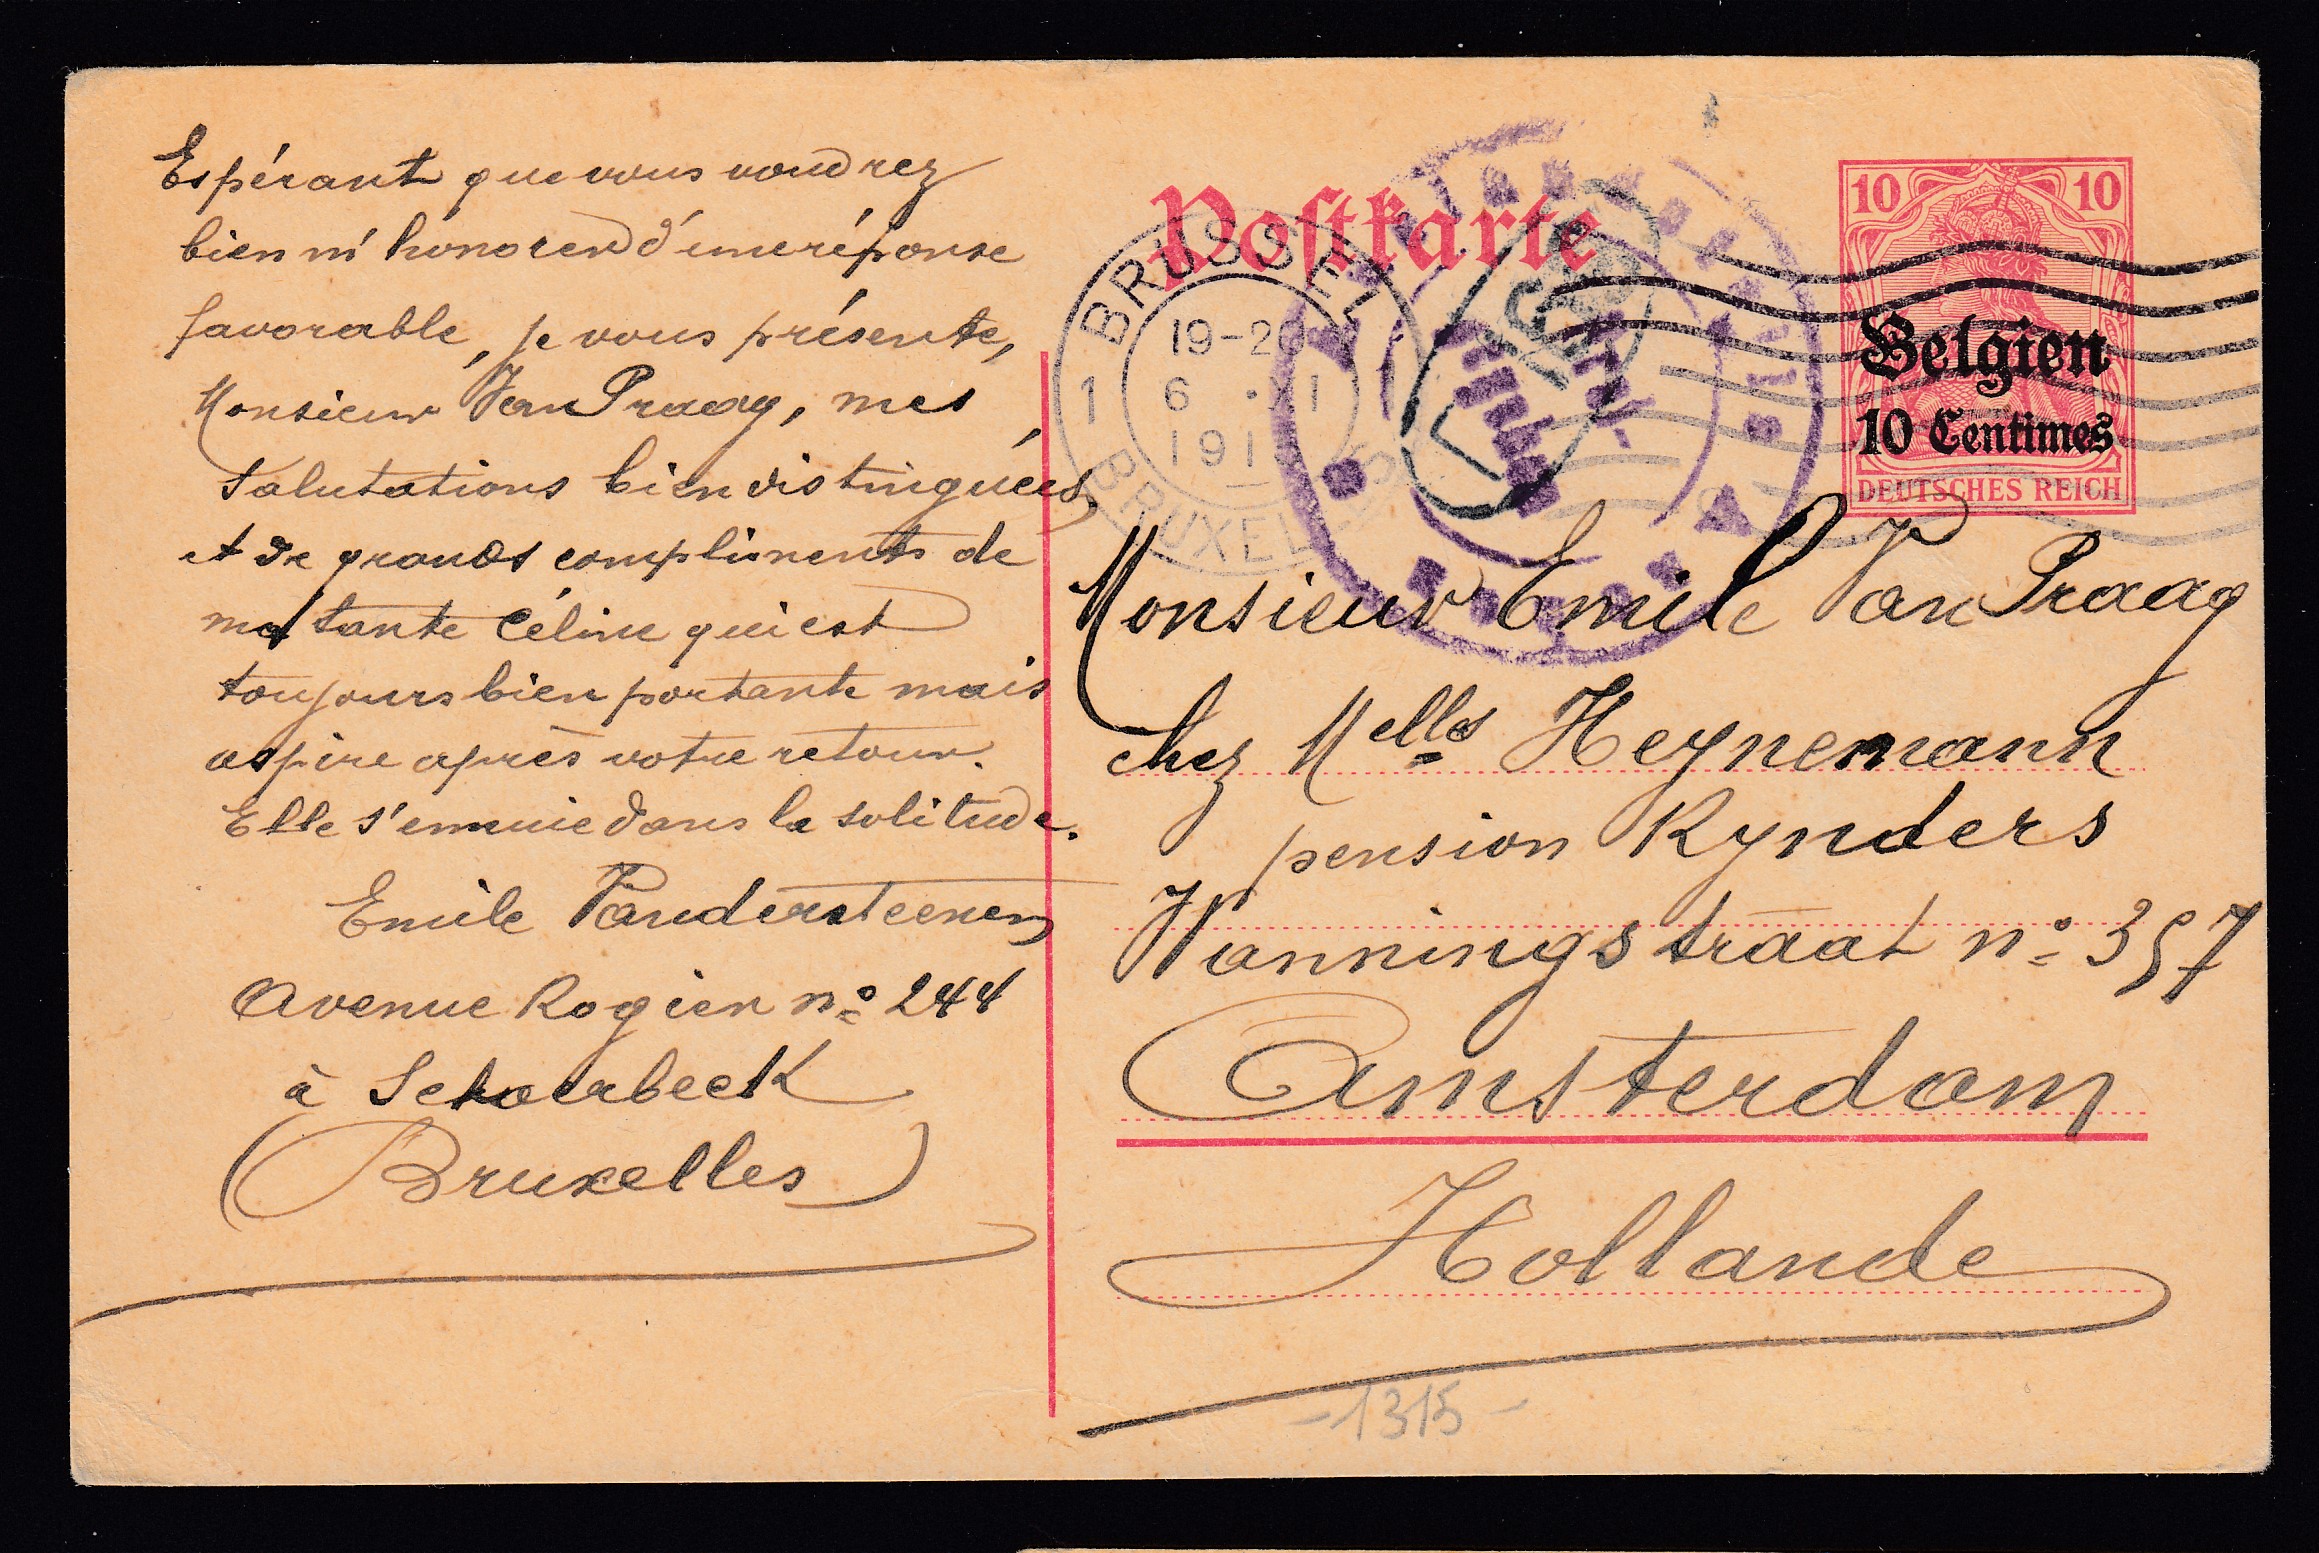 Espérant que vous voudrez
bien m'honorer d'une réponse
favorable, je vous présente,
Monsieur Van Praag, mes
salutations bien distinguées
et de grands compliments de
ma tante Céline qui est
toujours bien portante mais
aspire après votre retour.
Elle s'ennuie dans la solitude.
Emile Vandersteenen
Avenue Rogier nº 244
à Schaerbeek
(Bruxelles)
Postkarte
BRÜSSEL
1 1
19-20
6 .XI
191
BRUXELLES
10 10
Belgien
10 Centimes
DEUTSCHES REICH
Monsieur Emile Van Praag
chez Melles Heynemann
pension Rynders
Wanningstraat nº 357
Amsterdam
Hollande
-1315-